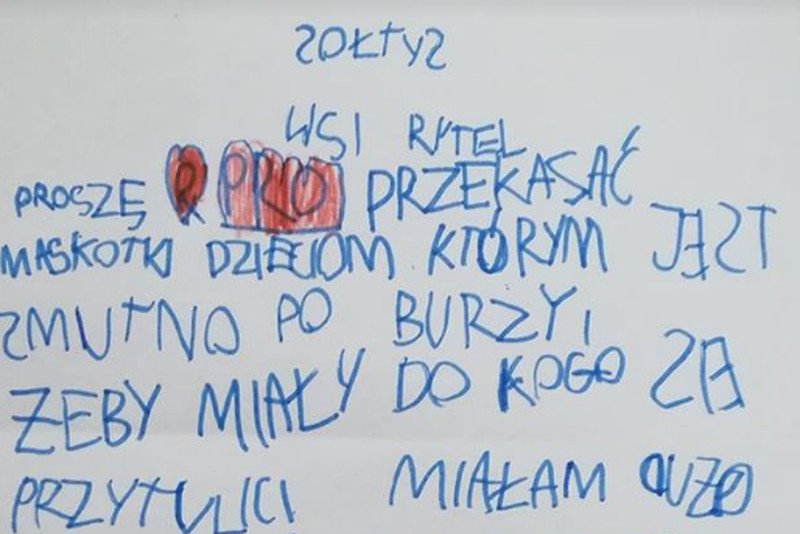 SOŁTYS
WSI RYTEL
PROSZĘ PRZEKASAĆ
MASKOTKI DZIECIOM KTÓRYM JEST
SMUTNO PO BURZY,
ŻEBY MIAŁY DO KOGO SIĘ
PRZYTULICI MIAŁAM DUŻO